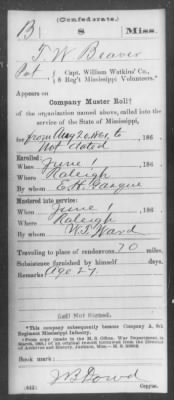 (Confederate.)
B 8 Miss.
T. W. Beaver
Pvt { Capt. William Watkins' Co.,
8 Reg't Mississippi Volunteers.*
Appears on
Company Muster Roll†
of the organization named above, called into the
service of the State of Mississippi,
for from Aug 26 1861, to
Not dated, 186
Enrolled:
When June 1, 186
Where Raleigh
By whom
Mustered into service:
When June 1, 186
Where Raleigh
By whom W. T. Ward
Traveling to place of rendezvous 20 miles.
Subsistence furnished by himself days.
Remarks: Age 27.
Roll Not Signed.
*This company subsequently became Company A, 8th
Regiment Mississippi Infantry.
Book mark:
Copyist.